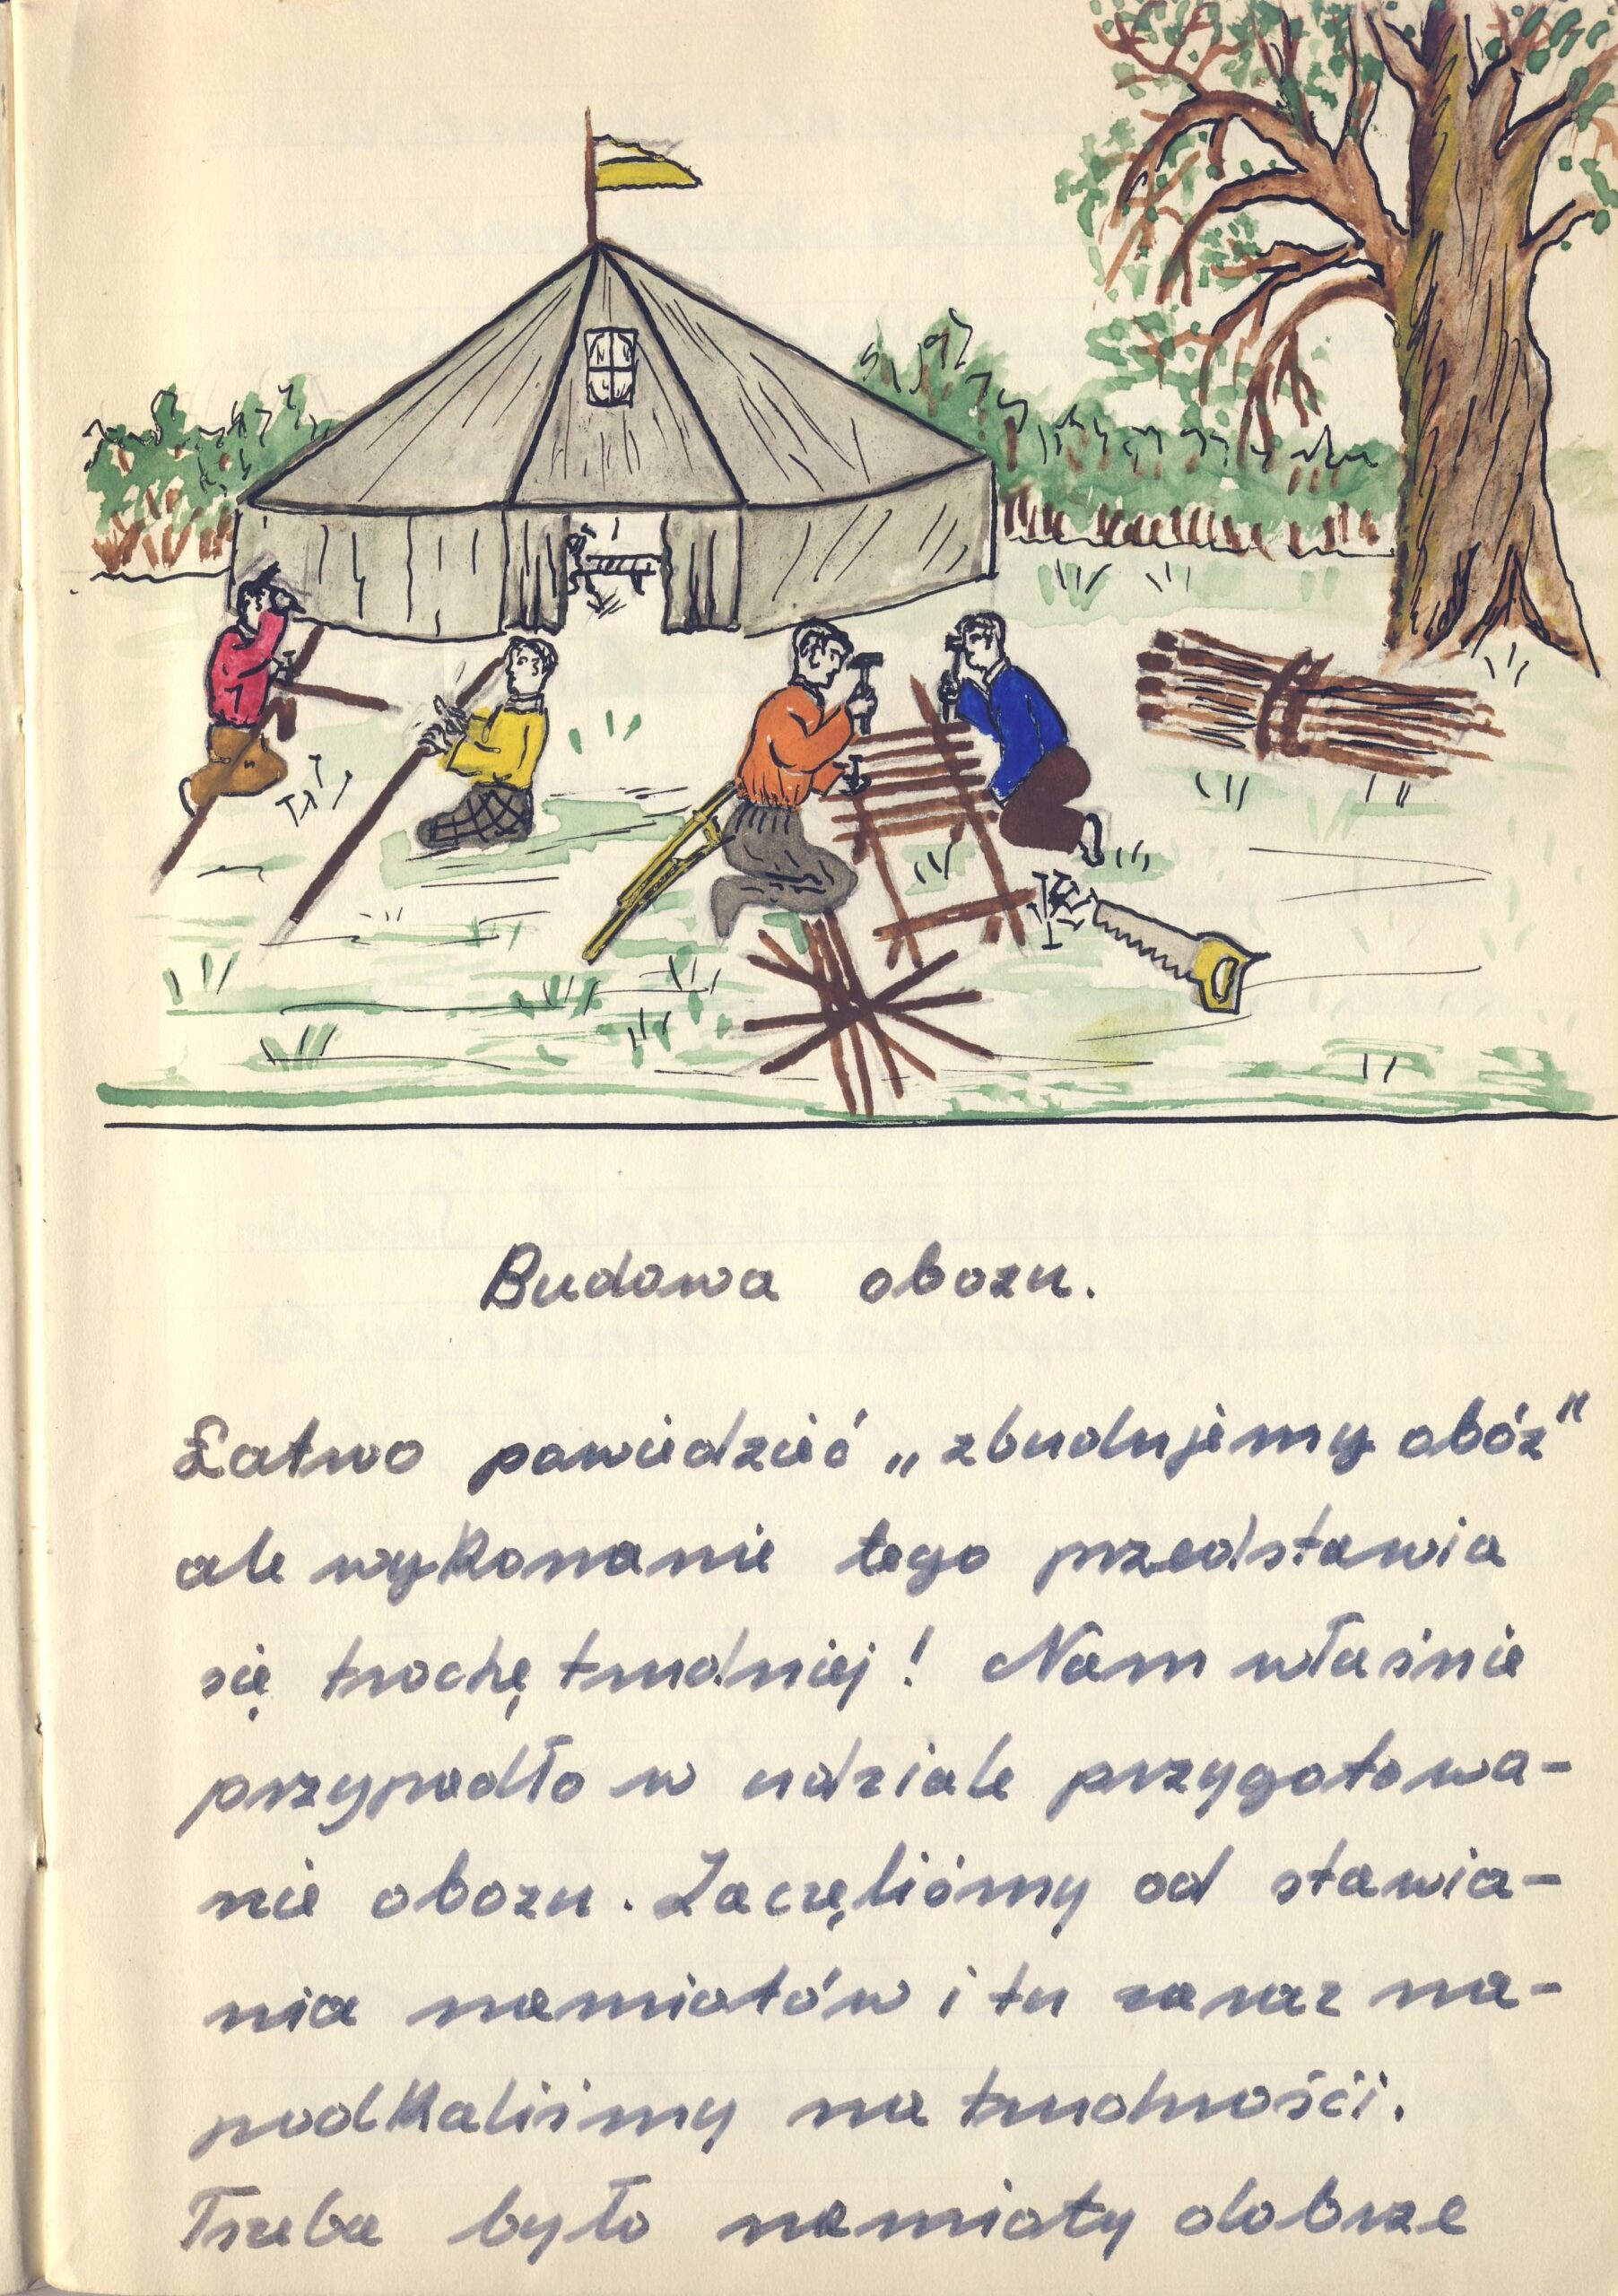 Budowa obozu.
Łatwo powiedzieć „zbudujemy obóz"
ale wykonanie tego przedstawia
się trochę trudniej! Nam właśnie
przypadło w udziale przygotowa-
nie obozu. Zaczęliśmy od stawia-
nia namiotów i tu zaraz na-
podkaliśmy na trudności.
Trzeba było namioty dobrze